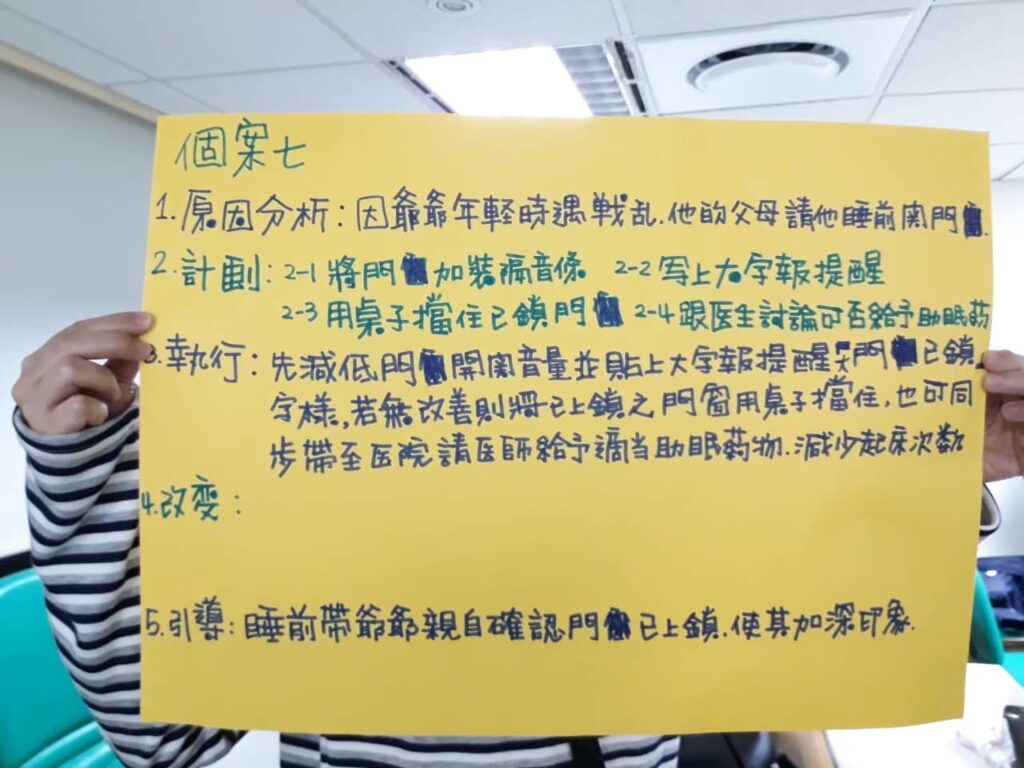 個案七
1. 原因分析：因爺爺年輕時遇戦乱.他的父母請他睡前関門.
2. 計劃：2-1 將門加装隔音條 2-2 写上大字報提醒
2-3 用桌子擋住已鎖門 2-4 跟医生討論可否給予助眠药
3. 執行：先減低門開関音量並貼上大字報提醒門已鎖
字樣,若無改善則將已上鎖之門窗用桌子擋住,也可同
步帶至医院請医師給予適当助眠药物.減少起床次数
4. 改变：
5. 引導：睡前帶爺爺親自確認門已上鎖.使其加深印象.